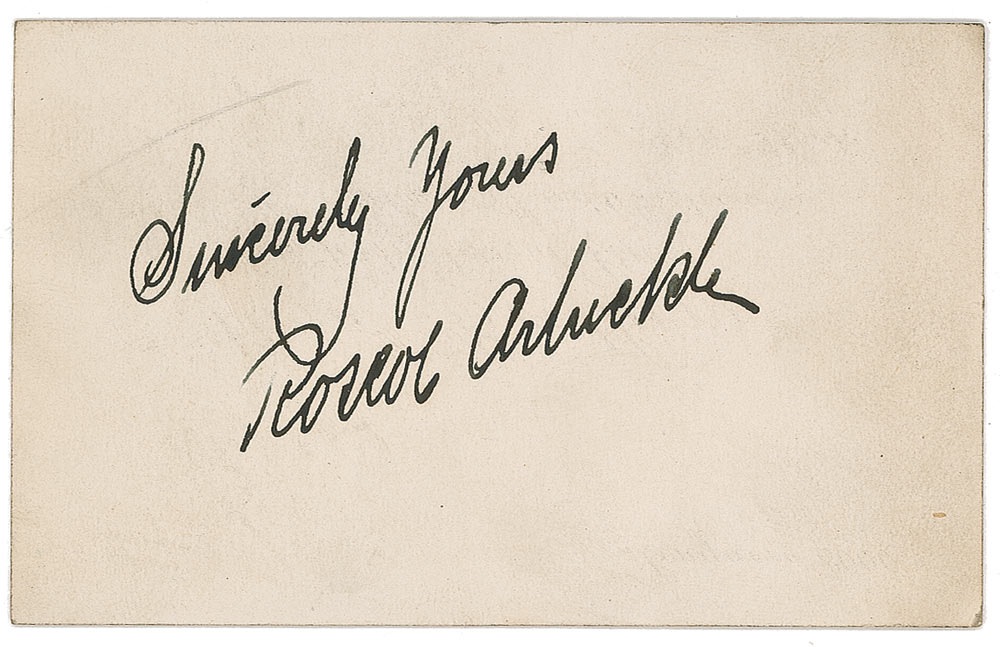 Sincerely Yours
Roscoe Arbuckle